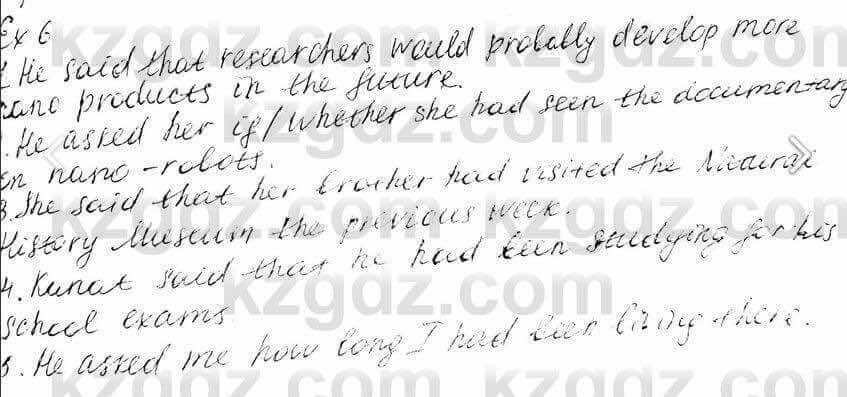 Ex 6
1. He said that researchers would probably develop more
nano products in the future.
2. He asked her if/whether she had seen the documentary
on nano-robots.
3. She said that her brother had visited the Natural
History Museum the previous week.
4. Kanat said that he had been studying for his
school exams.
5. He asked me how long I had been living there.
kzgdz.com